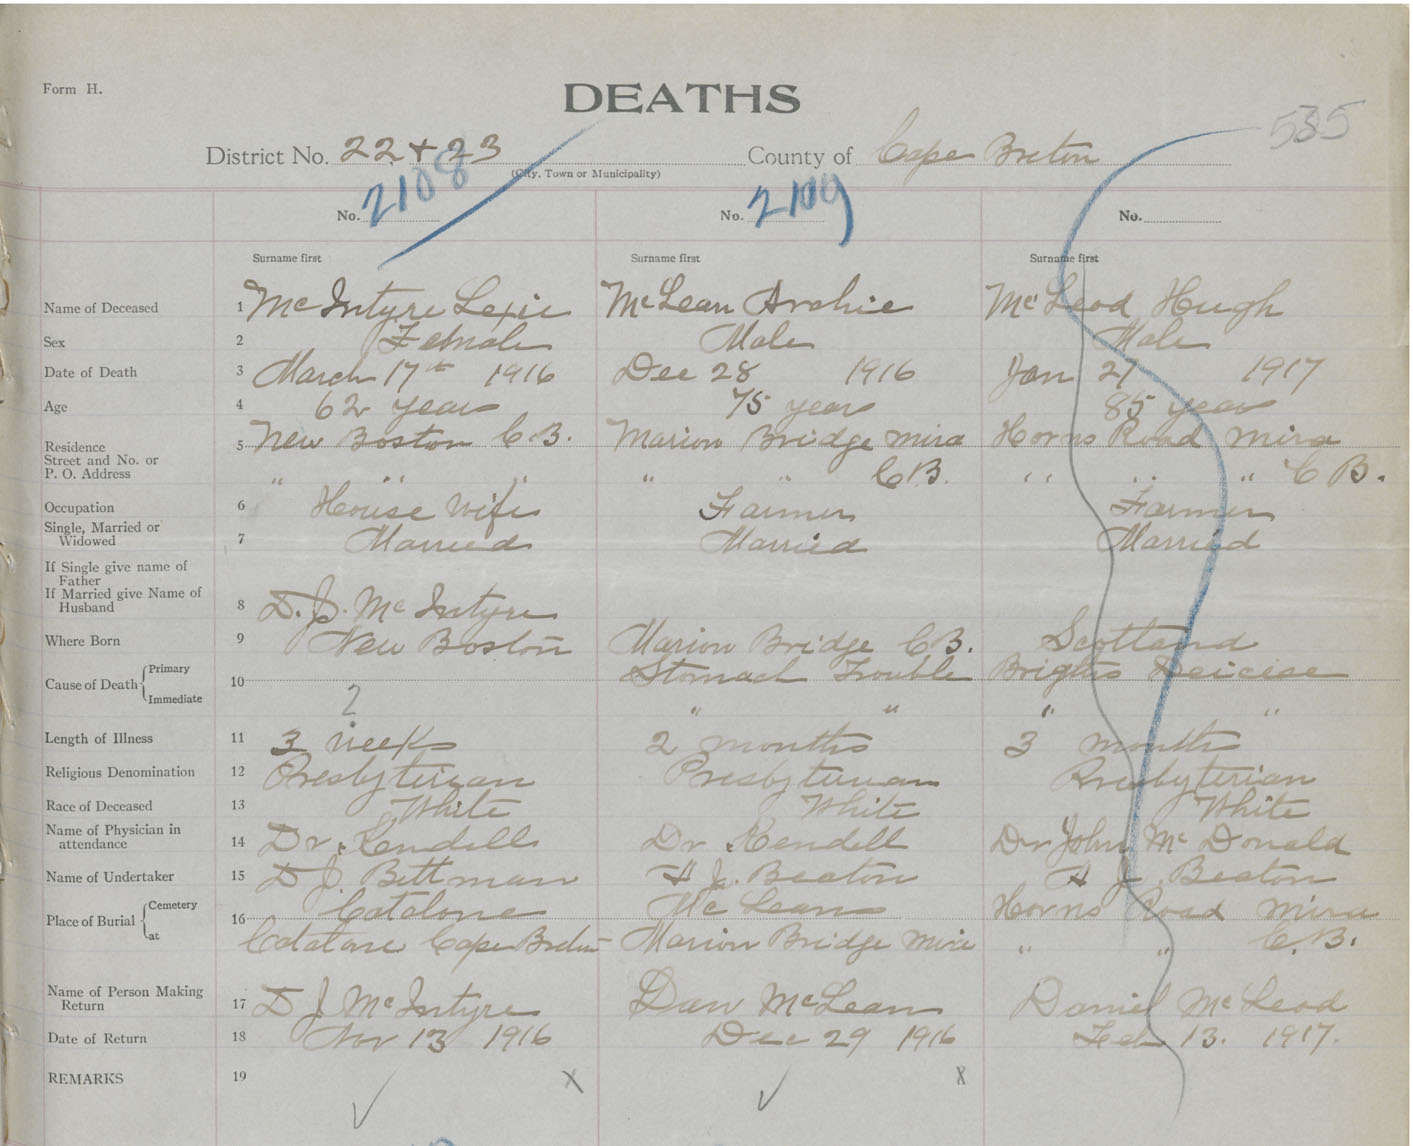 Form H.
DEATHS
535
District No. 22 + 23 County of Cape Breton
(City, Town or Municipality)
No. 2108 No. 2109 No.
Surname first Surname first Surname first
Name of Deceased 1 McIntyre Lexie McLean Archie McLeod Hugh
Sex 2 Female Male Male
Date of Death 3 March 17th 1916 Dec 28 1916 Jan 27 1917
Age 4 62 years 75 years 85 years
Residence Street and No. or P. O. Address 5 New Boston C.B. Marion Bridge Mira Horns Road Mira
" " " " C.B. " " " C B.
Occupation 6 House Wife Farmer Farmer
Single, Married or Widowed 7 Married Married Married
If Single give name of Father
If Married give Name of Husband 8 D. J. McIntyre
Where Born 9 New Boston Marion Bridge C.B. Scotland
Cause of Death { Primary 10 Stomach Trouble Brights Deicese
Immediate 2 " " " "
Length of Illness 11 3 weeks 2 months 3 months
Religious Denomination 12 Presbyterian Presbyterian Presbyterian
Race of Deceased 13 White White White
Name of Physician in attendance 14 Dr. Kendell Dr Kendell Dr John McDonald
Name of Undertaker 15 D J. Bettman H J. Beaton H J Beaton
Place of Burial { Cemetery 16 Catalone McLeans Horns Road Mira
at Catalone Cape Breton Marion Bridge Mira " " C.B.
Name of Person Making Return 17 D J McIntyre Dan McLean Daniel McLeod
Date of Return 18 Nov 13 1916 Dec 29 1916 Feb 13. 1917.
REMARKS 19 x x